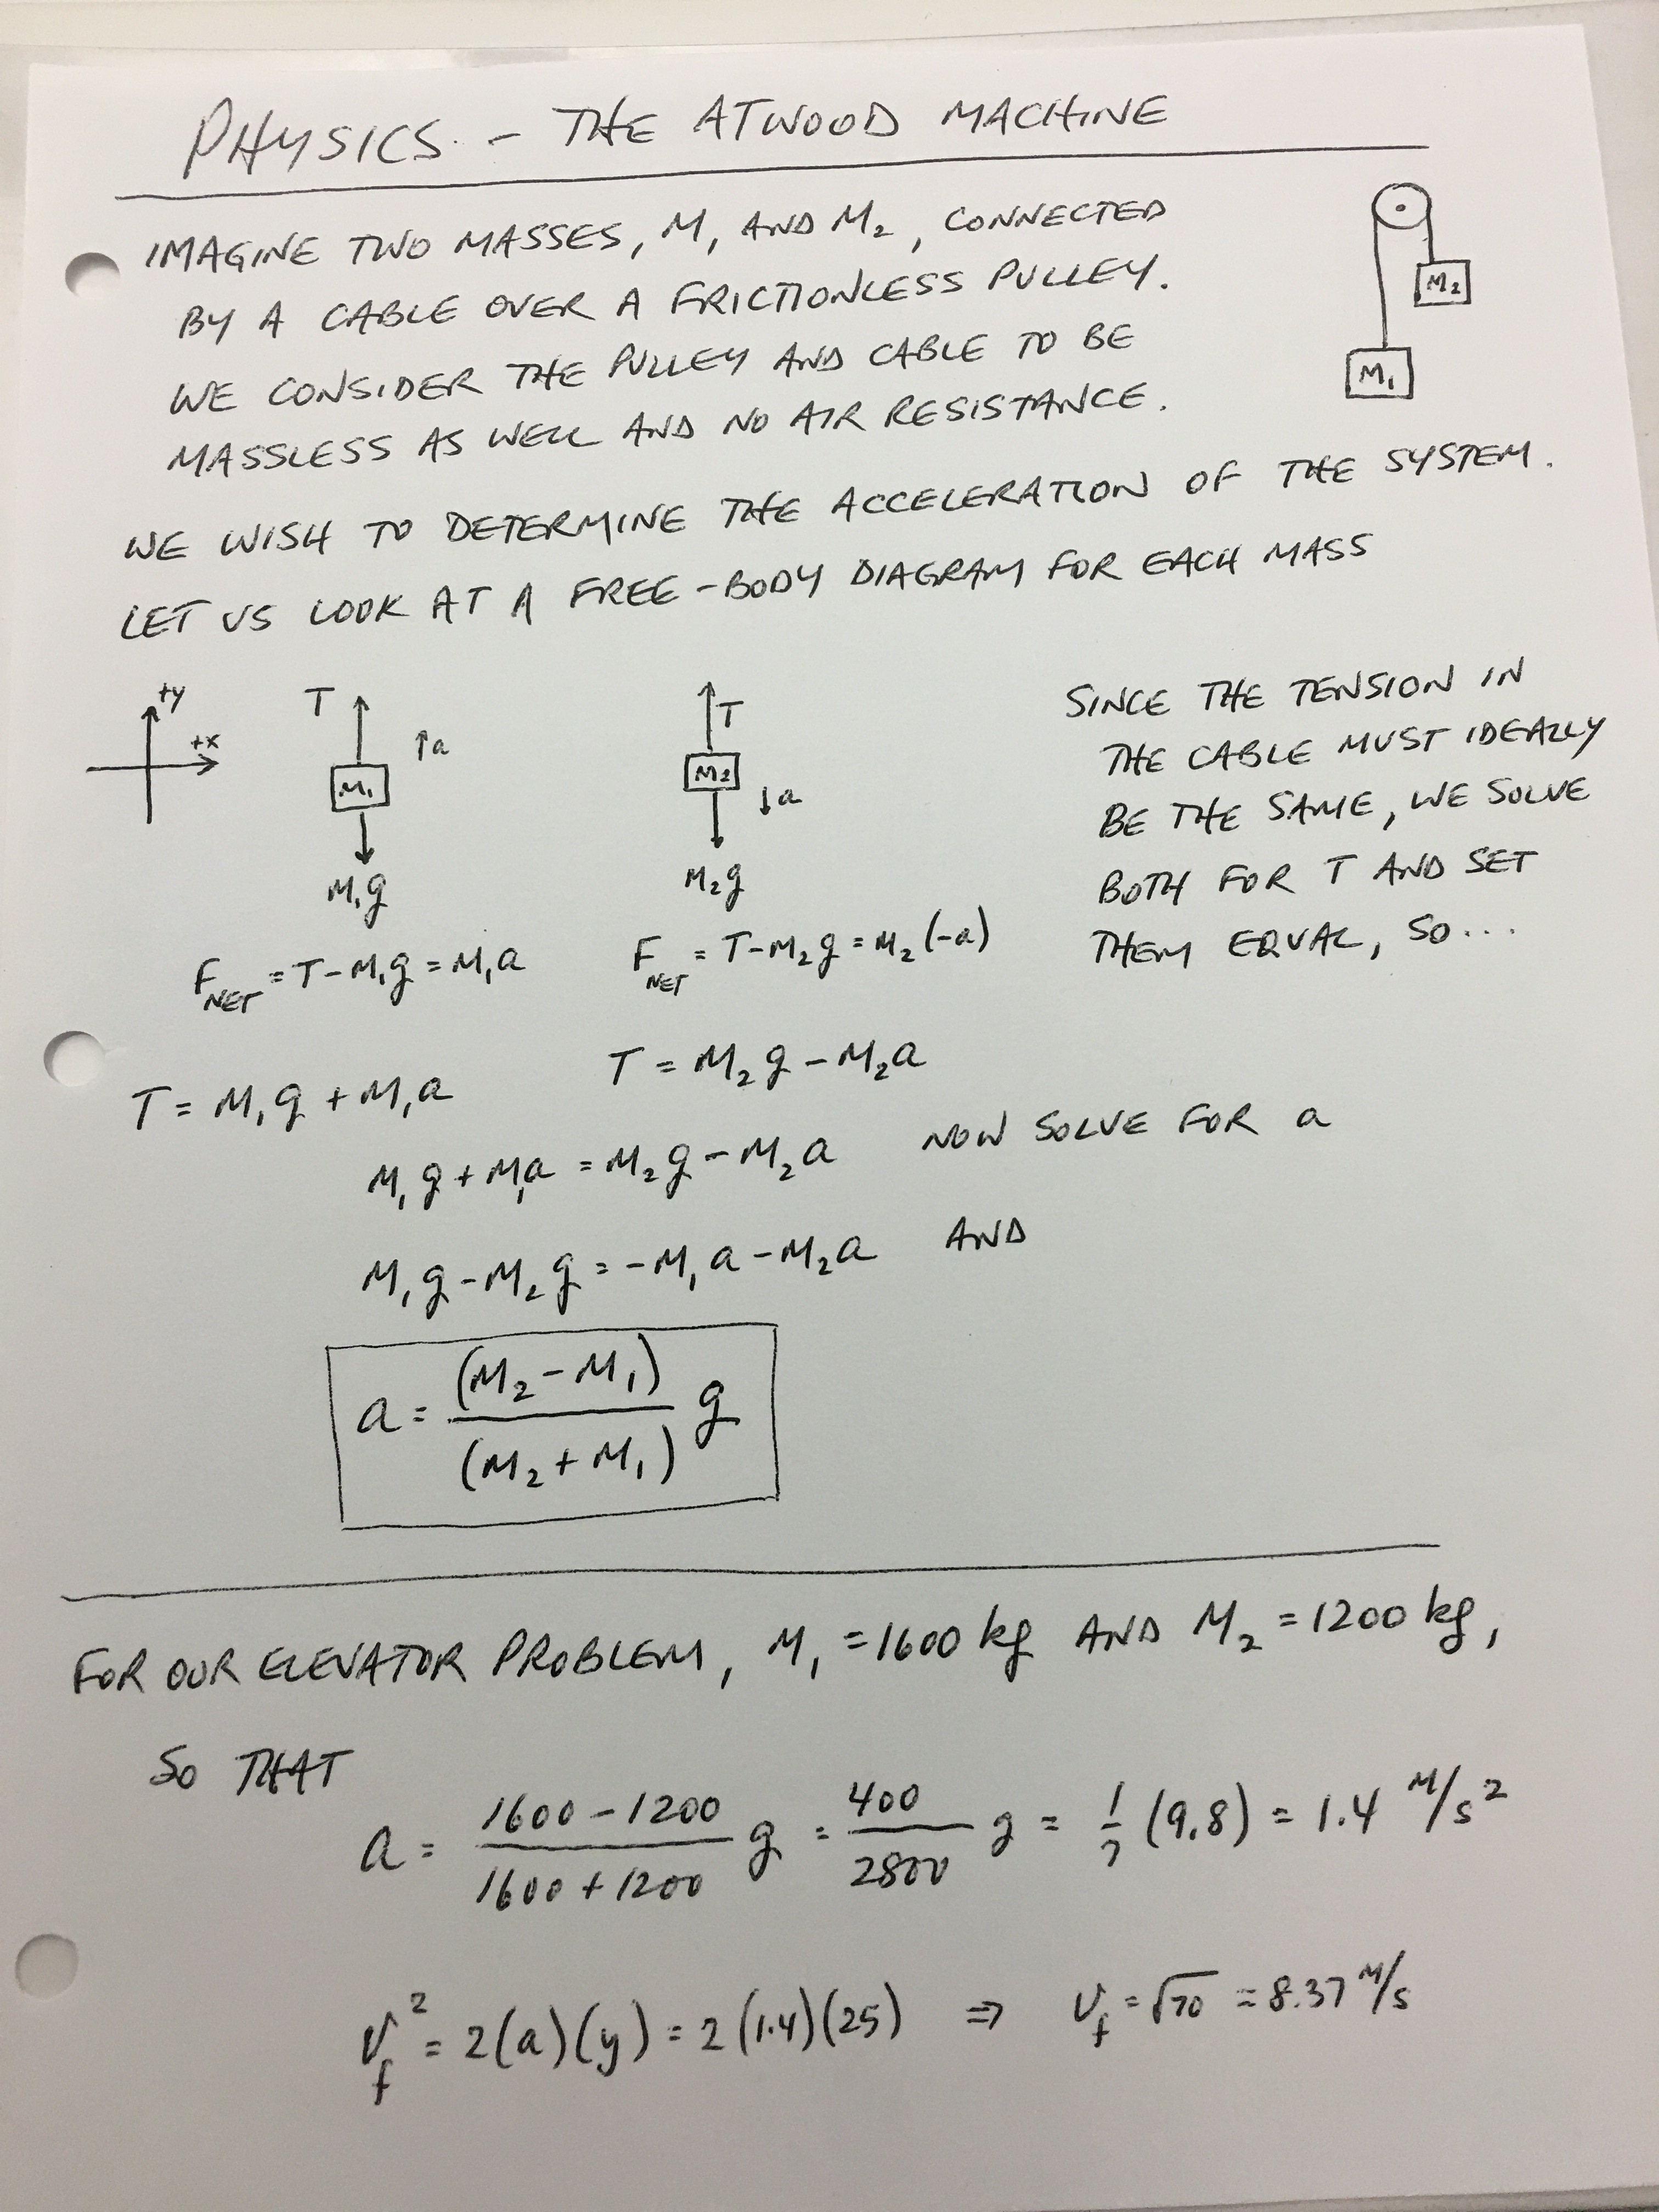 PHYSICS - THE ATWOOD MACHINE
IMAGINE TWO MASSES, M₁ AND M₂, CONNECTED
BY A CABLE OVER A FRICTIONLESS PULLEY.
WE CONSIDER THE PULLEY AND CABLE TO BE
MASSLESS AS WELL AND NO AIR RESISTANCE.
M₂
M₁
WE WISH TO DETERMINE THE ACCELERATION OF THE SYSTEM.
LET US LOOK AT A FREE-BODY DIAGRAM FOR EACH MASS
+y
+x
T
↑a
M₁
M₁g
T
M₂
↓a
M₂g
SINCE THE TENSION IN
THE CABLE MUST IDEALLY
BE THE SAME, WE SOLVE
BOTH FOR T AND SET
THEM EQUAL, SO...
F_NET = T-M₁g = M₁a
F_NET = T-M₂g = M₂(-a)
T = M₁g + M₁a
T = M₂g - M₂a
M₁g + M₁a = M₂g - M₂a NOW SOLVE FOR a
M₁g - M₂g = -M₁a - M₂a AND
a = (M₂-M₁)/(M₂+M₁) g
FOR OUR ELEVATOR PROBLEM, M₁ = 1600 kg AND M₂ = 1200 kg,
SO THAT
a = (1600-1200)/(1600+1200) g = 400/2800 g = 1/7 (9.8) = 1.4 M/s²
v_f² = 2(a)(y) = 2(1.4)(25) ⇒ v_f = √70 = 8.37 M/s